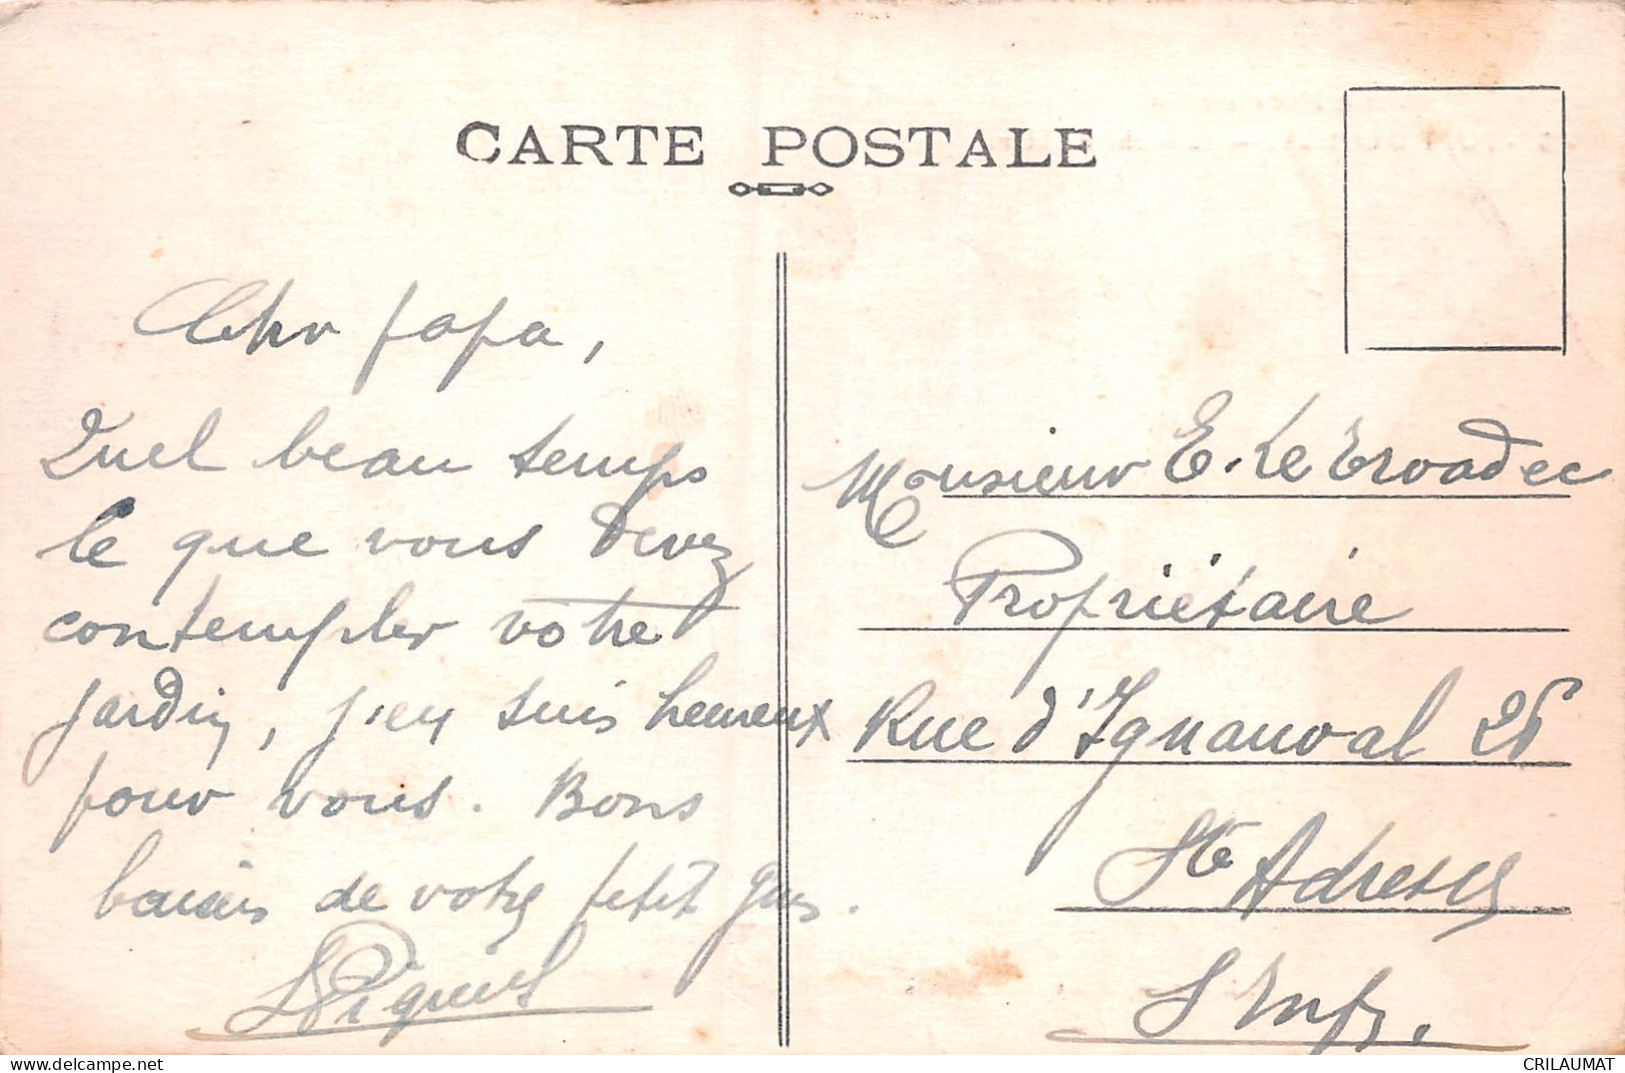 CARTE POSTALE
Cher papa,
Quel beau temps
le que vous devez
contempler votre
jardin, j'en suis heureux
pour vous. Bons
baisers de votre petit gas.
Monsieur E. Le Troadec
Propriétaire
Rue d'Ignauval 26
Ste Adresse
S Infre.
delcampe.net
CRILAUMAT